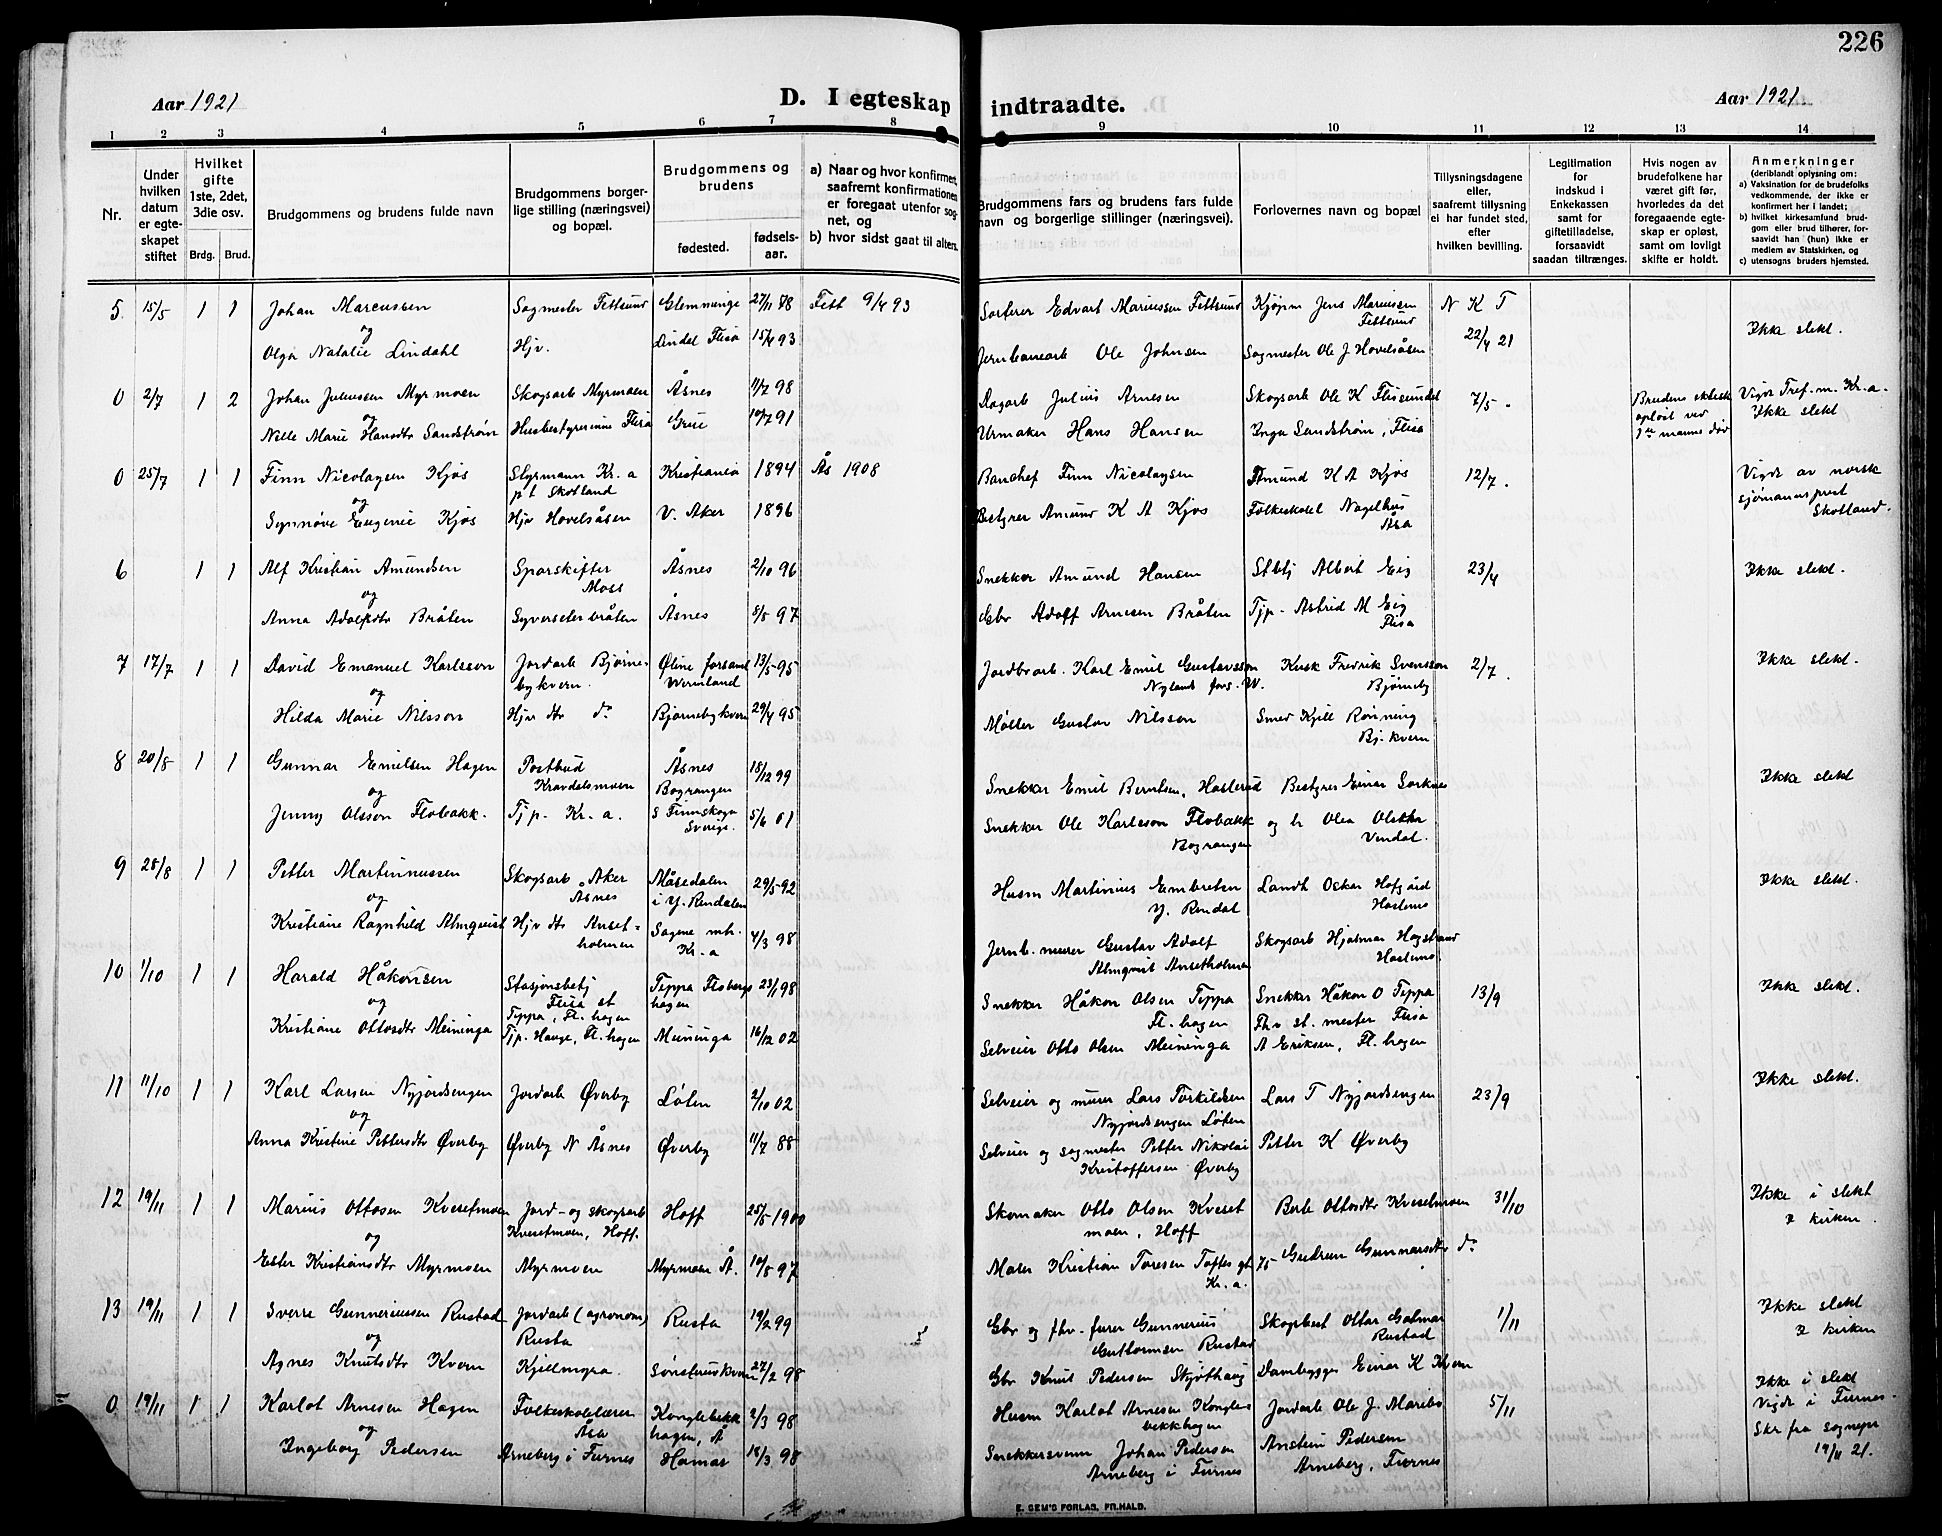 226
Aar 1921
D. I egteskap indtraadte.
Aar 1921
1 2 3 4 5 6 7 8 9 10 11 12 13 14
Nr.
Under hvilken datum er egteskapet stiftet
Hvilket gifte 1ste, 2det, 3die osv.
Brdg. Brud.
Brudgommens og brudens fulde navn
Brudgommens borgerlige stilling (næringsvei) og bopæl.
Brudgommens og brudens
fødested.
fødselsaar.
a) Naar og hvor konfirmert, saafremt konfirmationen er foregaat utenfor sognet, og
b) hvor sidst gaat til alters.
Brudgommens fars og brudens fars fulde navn og borgerlige stillinger (næringsvei).
Forlovernes navn og bopæl
Tillysningsdagene eller, saafremt tillysning ei har fundet sted, efter hvilken bevilling.
Legitimation for indskud i Enkekassen samt for giftetilladelse, forsaavidt saadan tiltrænges.
Hvis nogen av brudefolkene har været gift før, hvorledes da det foregaaende egteskap er opløst, samt om lovligt skifte er holdt.
Anmerkninger
(deriblandt oplysning om:
a) Vaksination for de brudefolks vedkommende, der ikke er konfirmert her i landet;
b) hvilket kirkesamfund brudgom eller brud tilhører, forsaavidt han (hun) ikke er medlem av Statskirken, og
c) utensogns bruders hjemsted.
5 15/5 1 1 Johan Marcussen Sagmester Fettsund Glemminge 27/11 78 Fett 9/4 93 Sorterer Edvart Mariussen Fettsund Kjøpm Jens Mariussen Fettsund N K T
og
Olga Natalie Lindahl Hjv. Lindal Flisa 15/4 93 Jernbanearb Ole Johnsen Sagmester Ole J Hovelsåsen 22/4 21 Ikke slekt.
0 2/7 1 2 Johan Juliussen Myrmoen Skogsarb Myrmoen Åsnes 11/7 98 Dagarb Julius Arnesen Skogsarb Ole K Flisundet 7/5 . Brudens ekteskap opløst ved 1ste manns død Vigdt Tref. m. Kr.a.
og Ikke slekt
Nille Marie Hansdtr Sandstrøm Husbestyrerinne Flisa Grue 10/7 91 Urmaker Hans Hansen Inga Sandstrøm, Flisa
0 25/7 1 1 Finn Nicolaysen Kjøs Styrmann Kr.a p t Skotland Kristiania 1894 Ås 1908 Banchef Finn Nicolaysen Amund K A Kjøs 12/7. Vigdt av norsk sjømannsprest Skotland.
og
Synnøve Eugenie Kjøs Hjv Hovelsåsen V. Aker 1896 Bestyrer Amund K A Kjøs Folkeskolel Nagelhus Åsa
6 1 1 Alf Kristian Amundsen Sporskifter Moss Åsnes 2/10 96 Snekker Amund Hansen Stblj Albert Eig 23/4 Ikke slekt.
og
Anna Adolfsdtr Bråten Syverseterbråten Åsnes 8/5 97 Gbr Adolf Arnesen Bråten Tjp. Astrid M Eig Flisa
7 17/7 1 1 David Emanuel Karlsson Jordarb Bjørnebykvern. Østine forsaml Wermland 13/5 95 Jordbrarb. Karl Emil Gustavsson Nyland fors. W. Kusk Fredrik Svensson Bjørneby 2/7. Ikke slekt.
og
Hilda Marie Nilsson Hjv dtr do Bjørnebykvern 29/4 95 Møller Gustav Nilsson Smed Kjell Rønning Bj. kvern
8 20/8 1 1 Gunnar Emilsen Hagen Postbud Kravdalsmoen Åsnes 18/12 99 Snekker Emil Berntsen, Haslerud Bestyrer Einar Sorknes Ikke slekt
og
Jenny Olsson Flobakk. Tjp. Kr.a. Bograngen S Finnskoga Sverige. 5/6 01 Snekker Ole Karlsson Flobakk Bograngen og hr Olea Olsdtr Vendal.
9 28/8 1 1 Petter Martinnussen Skogsarb Aker Åsnes Måsedalen i Y. Rendalen 29/5 92 Husm Martinius Embretsen Y. Rendal Landh Oskar Hofgård Haslemo Ikke slekt.
og
Kristiane Ragnhild Almquist Hjv dtr Ansetholmen Sagene mh. Kr.a 4/3 98 Jernb. murer Gustav Adolf Almqvist Ansetholmen Skogsarb Hjalmar Hagstrand Haslemo.
10 1/10 1 1 Harald Håkonsen Stasjonsbetj Flisa st Teppa, Fl. hagen Teppa Flisberghagen 23/1 98 Snekker Håkon Olsen Teppa Fl. hagen Snekker Håkon O Teppa 13/9 Ikke slekt.
og
Kristiane Ottosdtr Meininga Tjp. Hauge, Fl. hagen Meininga 16/12 02 Selveier Otto Olsen Meininga Fhv st. mester Flisa A Eriksen, Fl. hagen
11 11/10 1 1 Karl Larsen Nyjordsengen Jordarb Øverby Løten 2/10 02 Selveier og murer Lars Torkildsen Nyjordsengen Løten Lars T Nyjordsengen 23/9 Ikke slekt.
og
Anna Kristine Pettersdtr Øverby Øverby N Åsnes Øverby 11/7 88 Selveier og sagmester Petter Nikolai Kristoffersen Øverby Petter K Øverby
12 19/11 1 1 Marius Ottosen Kvesetmoen Jord- og skogsarb Kvesetmoen, Hoff. Hoff 25/5 1900 Skomaker Otto Olsen Kvesetmoen, Hoff Berte Ottosdtr Kvesetmoen 31/10 Ikke i slekt I kirken.
og
Ester Kristiansdtr Myrmoen Myrmoen Myrmoen Å. 10/8 97 Maler Kristian Toresen Toftes gt 75 Kr.a. Gudrun Gunnarsdtr do
13 19/11 1 1 Sverre Gunneriussen Rustad Jordarb (agronom) Rusta Rusta 19/2 99 Gbr og fhv. furer Gunnerius Guttormsen Rustad Skogbest Ottar Galmar Rustad 1/11 Ikke slekt I kirken
og
Agnes Knutsdtr Kvern Kjellmyra. Sønsterudkvern 27/2 98 Gbr Knut Pedersen Skjøthaug Dambygger Einar K Kvern
0 19/11 1 1 Karlot Arnesen Hagen Folkeskolelærer Åsa Konglebekkhagen, Å 2/3 98 Husm Karlot Arnesen Konglebekkhagen Jordarb Ole J. Maribo 5/11 Ikke i slekt Vigdt i Furnes.
og
Ingeborg Pedersen Arneberg i Furnes Hamar 18/3 98 Snekkersvenn Johan Pedersen Arneberg i Furnes Anstein Pedersen Arneberg, Furnes Skr fra sognepr 19/11 21.
E. SEM'S FORLAG, FR.HALD.